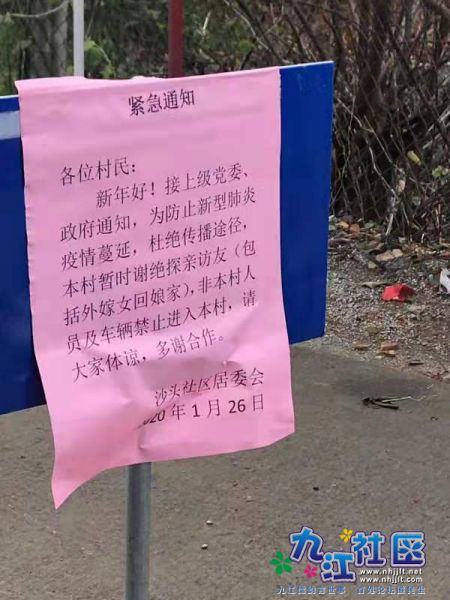 紧急通知
各位村民：
新年好！接上级党委、
政府通知，为防止新型肺炎
疫情蔓延，杜绝传播途径，
本村暂时谢绝探亲访友（包
括外嫁女回娘家），非本村人
员及车辆禁止进入本村，请
大家体谅，多谢合作。
沙头社区居委会
2020年1月26日
九江社区
www.nhjjlt.net
www.nhjjlt.com